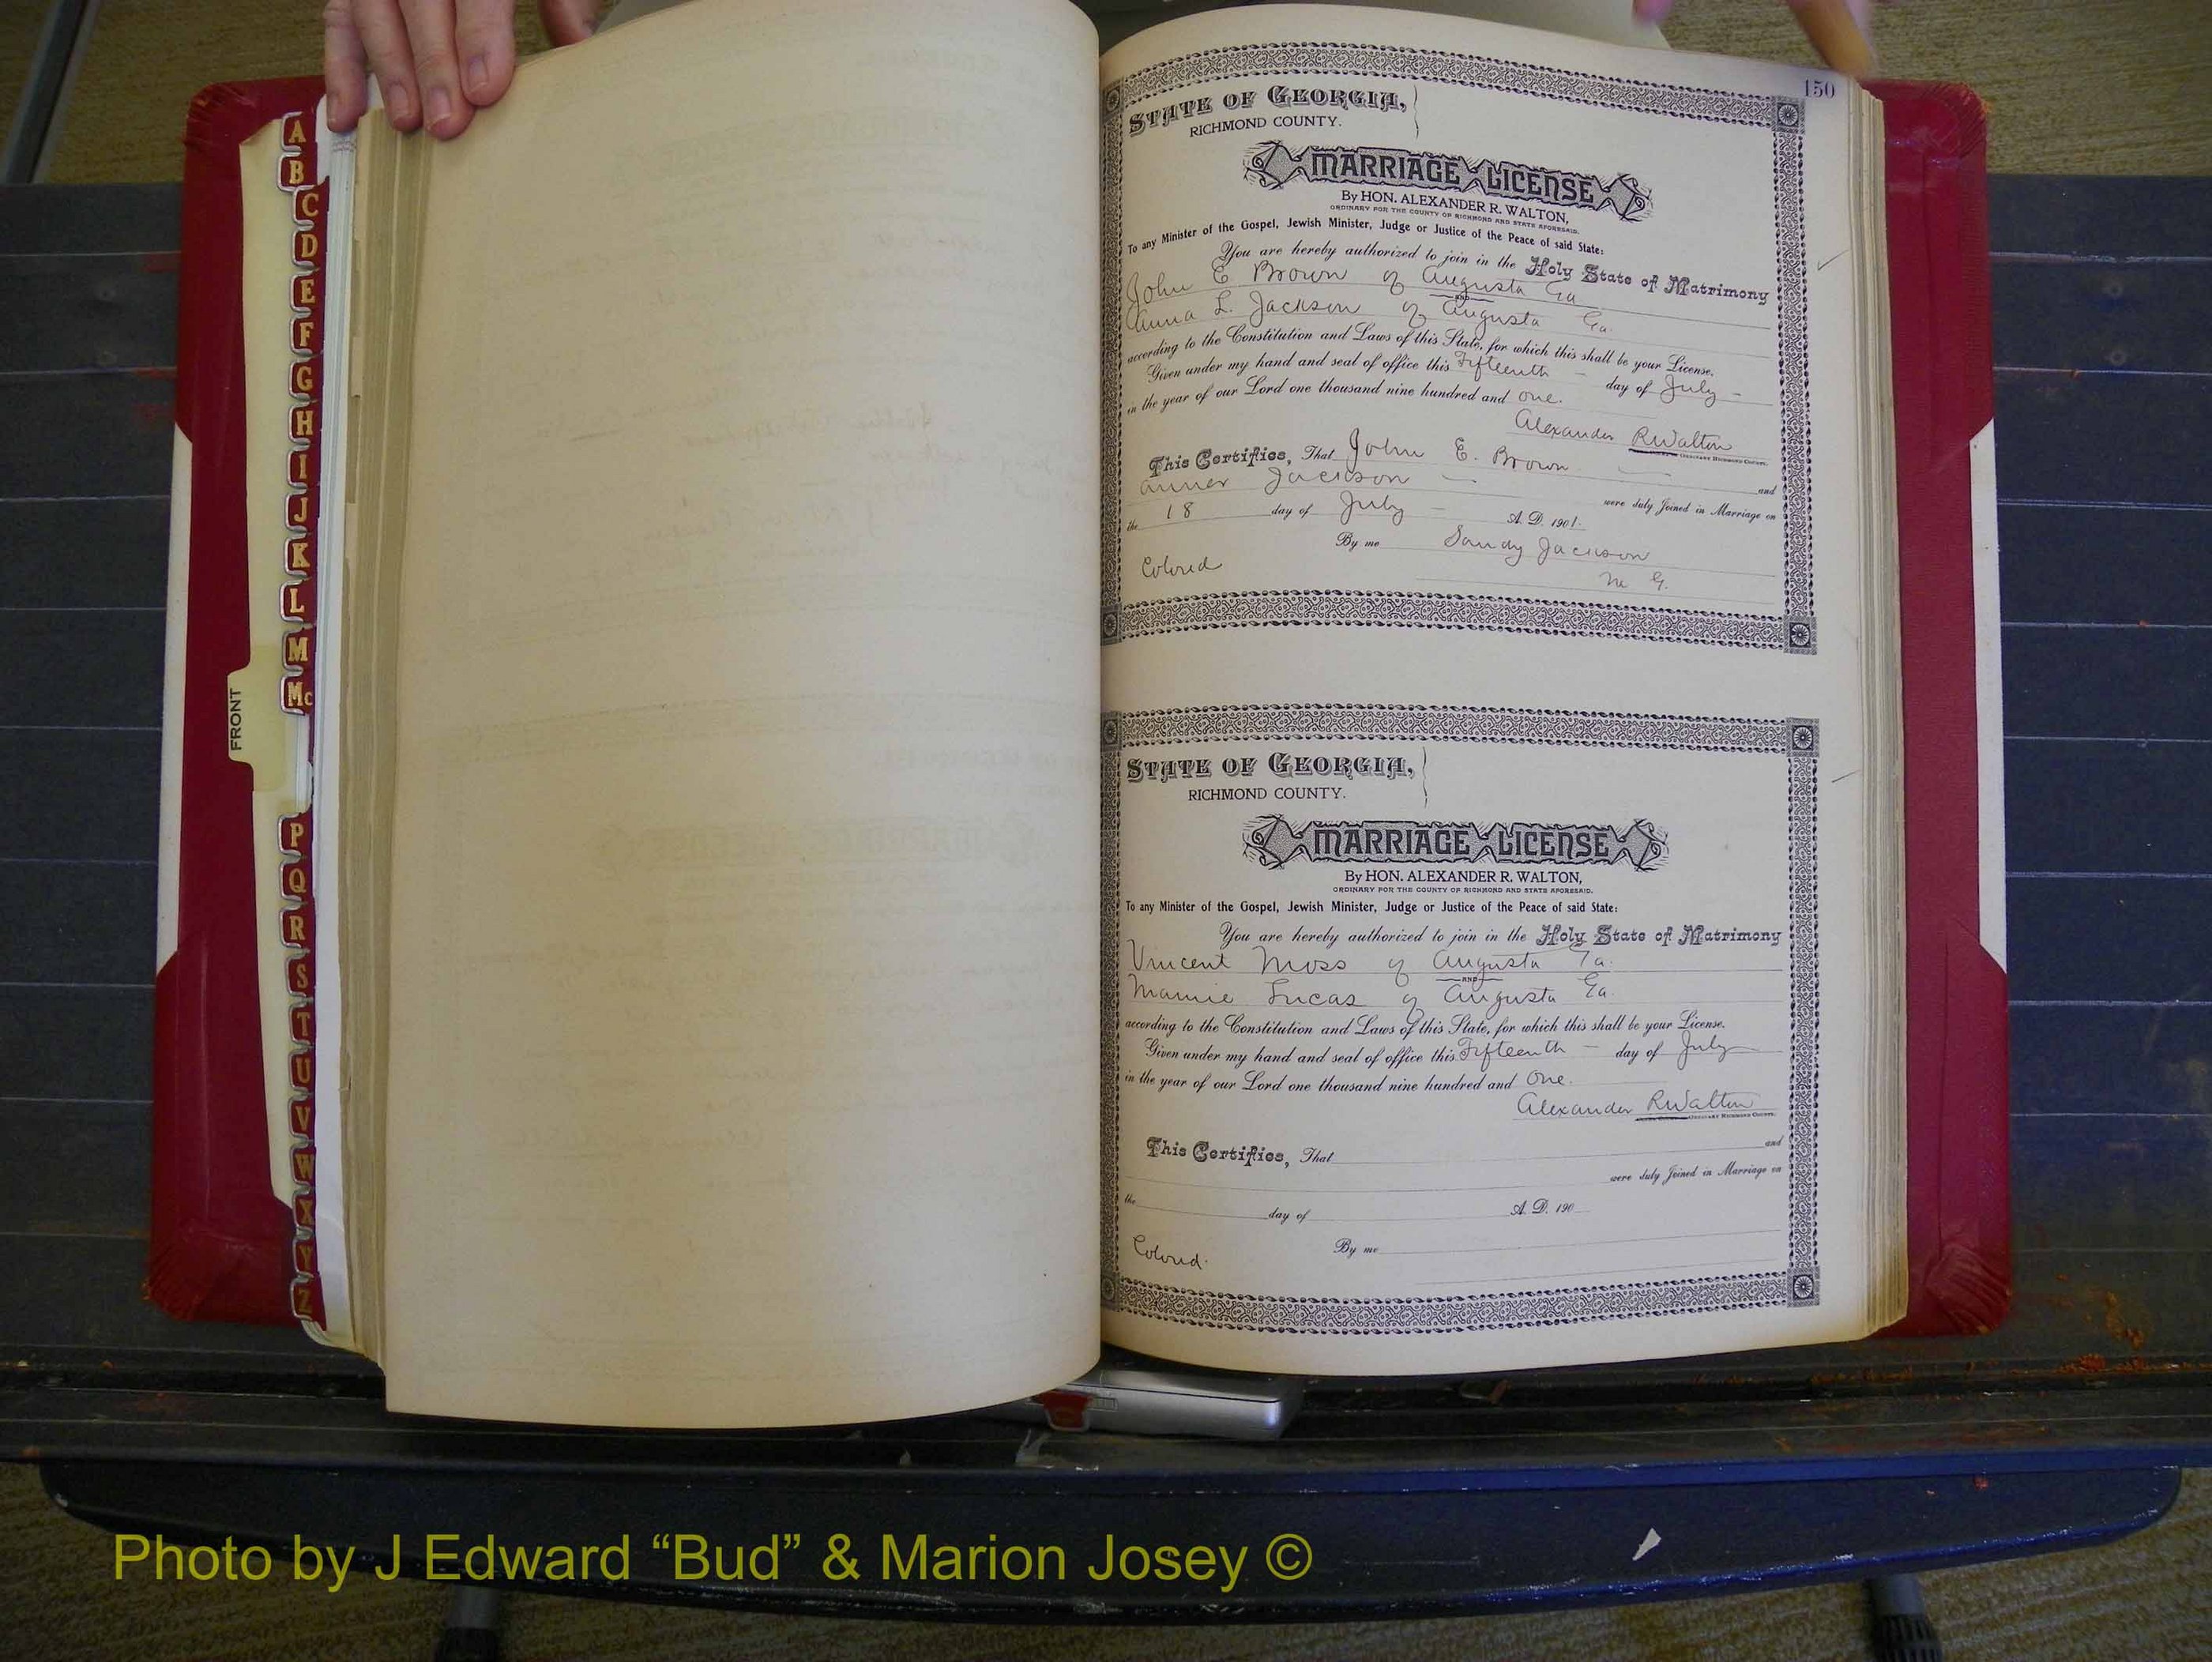 A
B
C
D
E
F
G
H
I
J
K
L
M
Mc
FRONT
P
Q
R
S
T
U
V
W
X
Y
Z
150
STATE OF GEORGIA,
RICHMOND COUNTY.
MARRIAGE LICENSE
By HON. ALEXANDER R. WALTON,
ORDINARY FOR THE COUNTY OF RICHMOND AND STATE AFORESAID.
To any Minister of the Gospel, Jewish Minister, Judge or Justice of the Peace of said State:
You are hereby authorized to join in the Holy State of Matrimony
John E Brown of Augusta Ga
AND
Anna L. Jackson of Augusta Ga.
according to the Constitution and Laws of this State, for which this shall be your License.
Given under my hand and seal of office this Fifteenth - day of July -
in the year of our Lord one thousand nine hundred and one.
Alexander R Walton
ORDINARY RICHMOND COUNTY.
This Certifies, That John E. Brown and
Anner Jackson were duly Joined in Marriage on
the 18 day of July A. D. 1901.
By me Sandy Jackson
Colored M G.
STATE OF GEORGIA,
RICHMOND COUNTY.
MARRIAGE LICENSE
By HON. ALEXANDER R. WALTON,
ORDINARY FOR THE COUNTY OF RICHMOND AND STATE AFORESAID.
To any Minister of the Gospel, Jewish Minister, Judge or Justice of the Peace of said State:
You are hereby authorized to join in the Holy State of Matrimony
Vincent Moss of Augusta Ga.
AND
Mamie Lucas of Augusta Ga.
according to the Constitution and Laws of this State, for which this shall be your License.
Given under my hand and seal of office this Fifteenth - day of July
in the year of our Lord one thousand nine hundred and One.
Alexander R Walton
ORDINARY RICHMOND COUNTY.
This Certifies, That and
were duly Joined in Marriage on
the day of A. D. 190
Colored. By me
Photo by J Edward “Bud” & Marion Josey ©